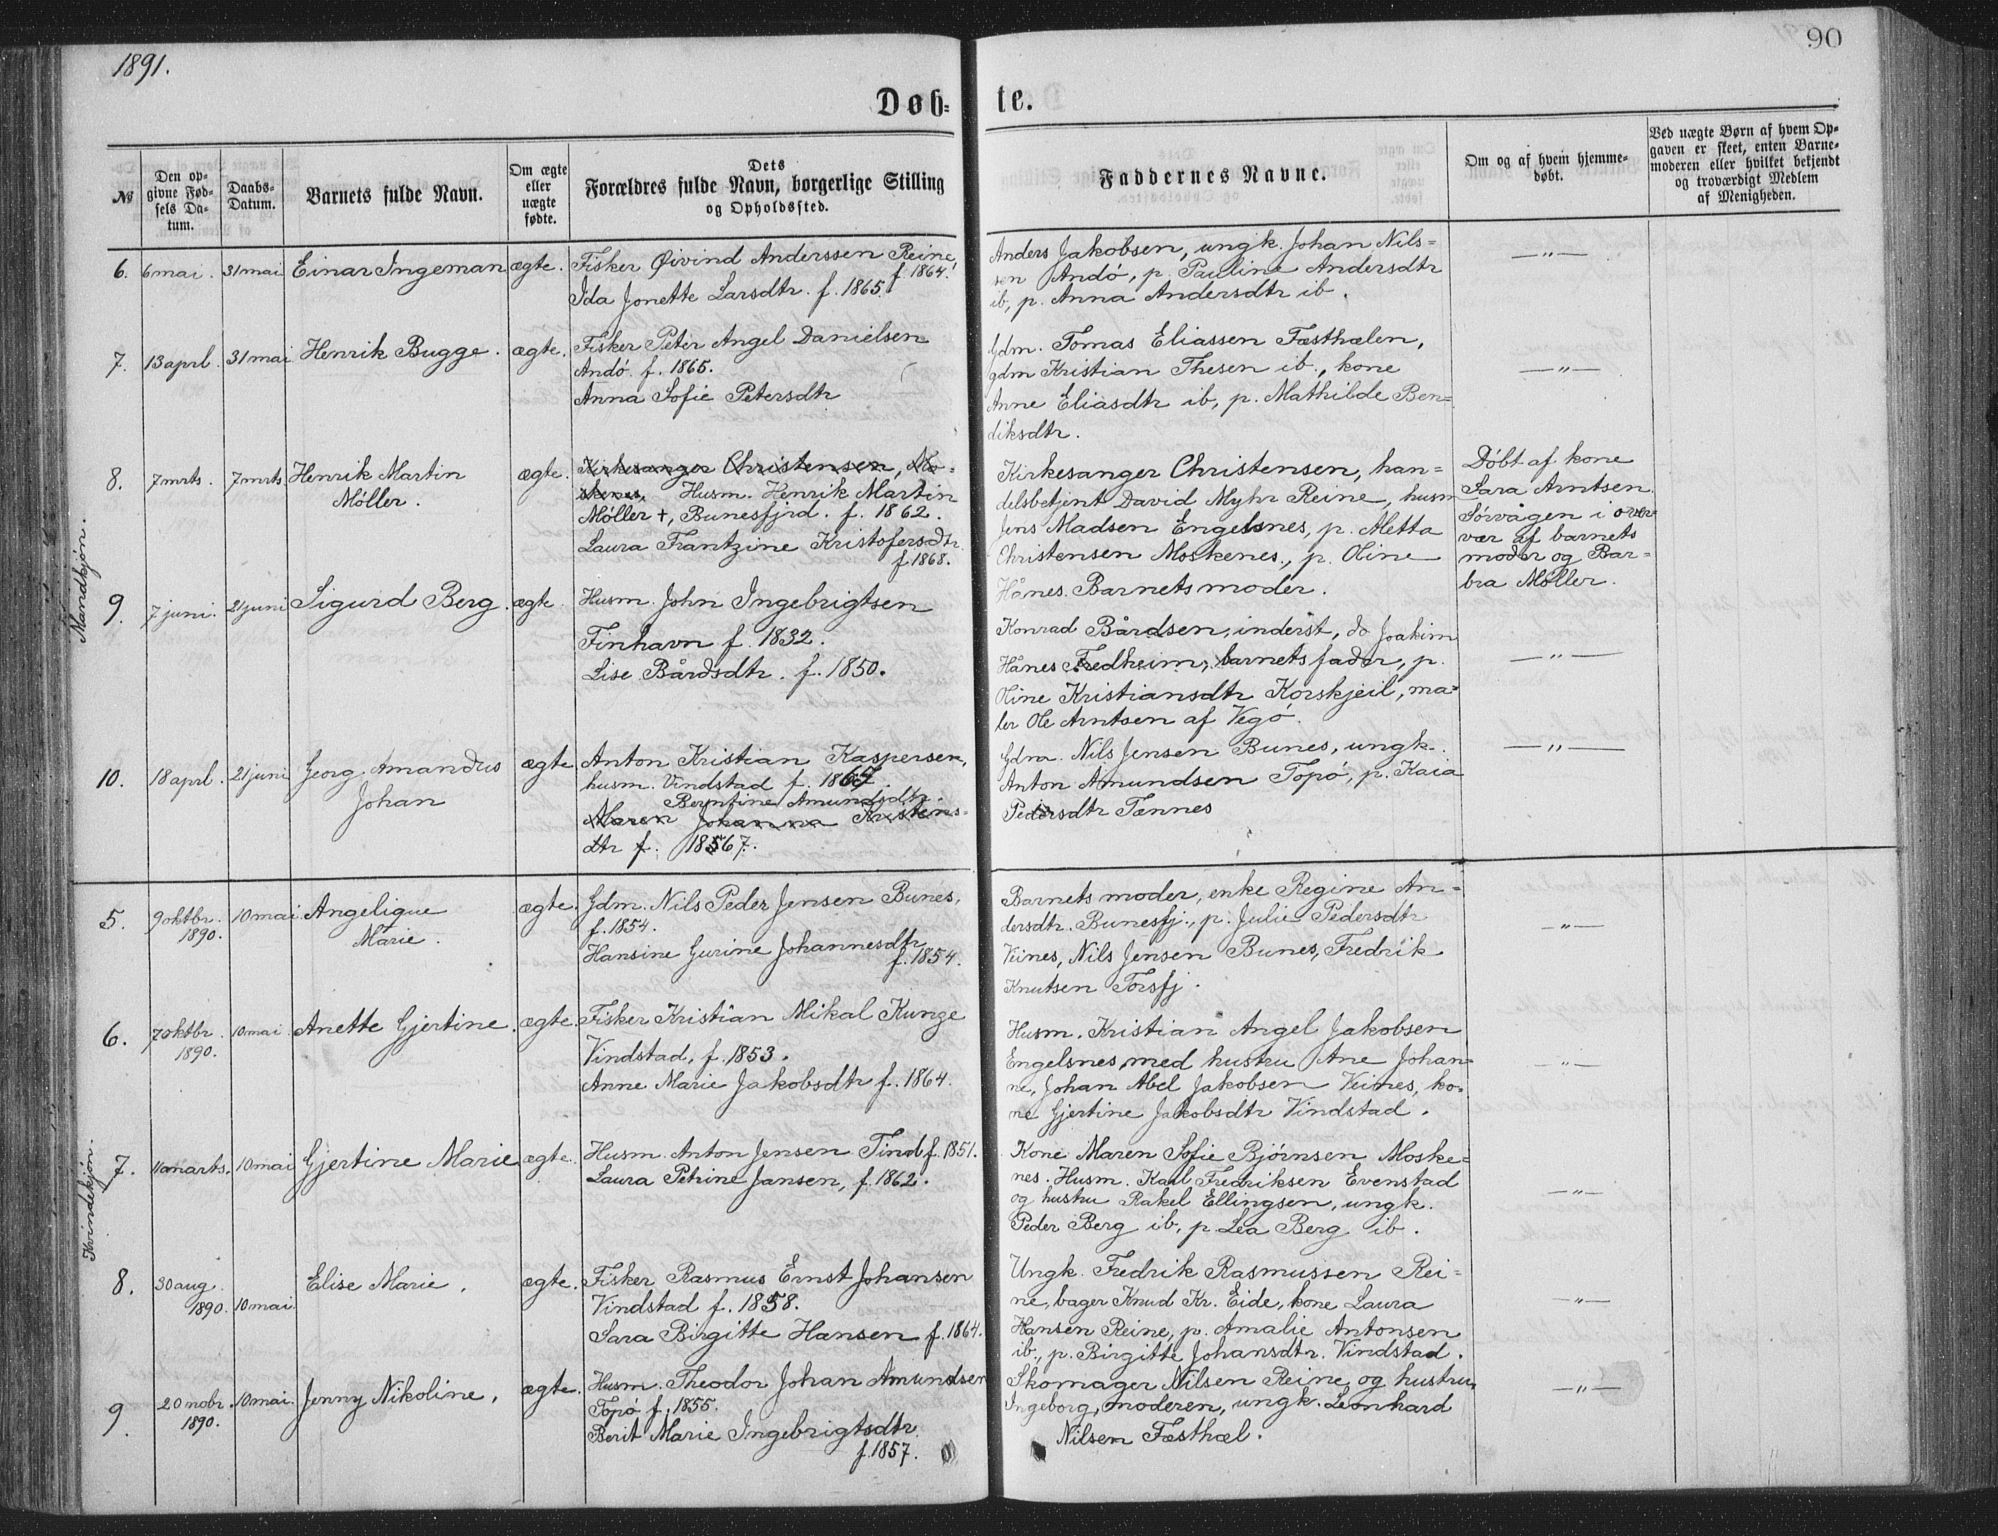 1891.
90
Døb-
te.
№
Den op-
givne Fød-
sels Da-
tum.
Daabs-
Datum.
Barnets fulde Navn.
Om ægte
eller
uægte
fødte.
Dets
Forældres fulde Navn, borgerlige Stilling
og Opholdssted.
Faddernes Navne.
Om og af hvem hjemme-
døbt.
Ved uægte Børn af hvem Op-
gaven er skeet, enten Barne-
moderen eller hvilket bekjendt
og troværdigt Medlem
af Menigheden.
Mandkjøn.
6. 6 mai. 31 mai Einar Ingeman ægte. Fisker Øivind Anderssen Reine,
f. 1864.
Ida Jonette Larsdtr. f. 1865.
Anders Jakobsen, ungk. Johan Nils-
sen Andø, p. Pauline Andersdtr
ib, p. Anna Andersdtr ib.
—„—
7. 13 aprl. 31 mai Henrik Bugge. ægte. Fisker Peter Angel Danielsen
Andø. f. 1865.
Anna Sofie Petersdtr
Gdm. Tomas Eliassen Fæsthælen,
gdm Kristian Thesen ib., kone
Anne Eliasdtr ib, p. Mathilde Ben-
diksdtr.
—„—
8. 7 mrts. 7 mrts. Henrik Martin
Møller.
ægte. Kirkesanger Christensen, Mo-
skenes, Husm. Henrik Martin
Møller +, Bunesfjrd. f. 1862.
Laura Frantzine Kristofersdtr
f. 1868.
Kirkesanger Christensen, han-
delsbetjent David Myhr Reine, husm
Jens Madsen Engelsnes, p. Aletta
Christensen Moskenes., p. Oline
Hånes. Barnets moder.
Døbt af kone
Sara Arntsen
Sørvågen i over
vær af barnets
moder og Bar-
bra Møller.
9. 7 juni. 21 juni Sigurd Berg. ægte. Husm. John Ingebrigtsen
Finhavn f. 1832.
Lise Bårdsdtr. f. 1850.
Konrad Bårdsen, inderst, do Joakim
Hånes Fredheim, barnets fader, p.
Oline Kristiansdtr Korskjeil, ma-
ler Ole Arntsen af Vegø.
—„—
10. 18 aprl. 21 juni Georg Amandus
Johan
ægte Anton Kristian Kaspersen,
husm. Vindstad f. 1867.
Berntine Amundsdtr.
Maren Johanna Kristens-
dtr f. 1867.
Gdm. Nils Jensen Bunes, ungk.
Anton Amundsen Topø, p. Kaia
Pedersdtr Tennes
—„—
Kvindekjøn.
5. 9 oktbr.
1890.
10 mai Angelique
Marie.
ægte. Gdm. Nils Peder Jensen Bunes,
f. 1854.
Hansine Gurine Johannesdtr
f. 1854.
Barnets moder, enke Regine An-
dersdtr. Bunesfj., p. Julie Pedersdtr
Veines, Nils Jensen Bunes, Fredrik
Knutsen Forsfj.
—„—
6. 7 oktbr.
1890.
10 mai. Anette Gjertine. ægte. Fisker Kristian Mikal Kunge
Vindstad, f. 1853.
Anne Marie Jakobsdtr f. 1864.
Husm. Kristian Angel Jakobsen
Engelsnes, med hustru Ane Johan-
ne, Johan Abel Jakobsen Veines, ko-
ne Gjertine Jakobsdtr Vindstad.
—„—
7. 11 marts. 10 mai Gjertine Marie ægte. Husm. Anton Jensen Tind f. 1851.
Laura Petrine Jansen, f. 1862.
Kone Maren Sofie Bjørnsen Moske-
nes. Husm. Karl Fredriksen Evenstad
og hustru Rakel Ellingsen, ungk.
Peder Berg ib, p. Lea Berg ib.
—„—
8. 30 aug.
1890. 10 mai
Elise Marie. ægte. Fisker Rasmus Ernst Johansen
Vindstad f. 1858.
Sara Birgitte Hansen f. 1864.
Ungk. Fredrik Rasmussen Rei-
ne, bager Knud Kr. Eide, kone Laura
Hansen Reine, p. Amalie Antonsen
ib., p. Birgitte Johansdtr. Vindstad.
—„—
9. 20 nobr.
1890.
10 mai. Jenny Nikoline. ægte. Husm. Theodor Johan Amundsen
Topø f. 1855.
Berit Marie Ingebrigtsdtr
f. 1857.
Skomager Nilsen Reine og hustru
Ingeborg, moderen, ungk. Leonhard
Nilsen Fæsthæl.
—„—